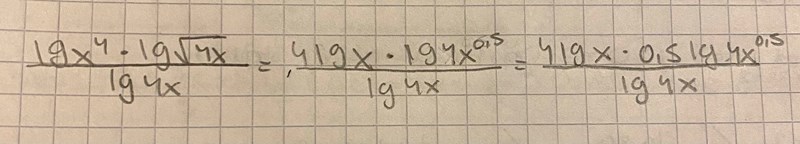 \frac{lg x^4 · lg \sqrt{4x}}{lg 4x} = \frac{4 lg x · lg 4x^{0,5}}{lg 4x} = \frac{4 lg x · 0,5 lg 4x^{0,5}}{lg 4x}